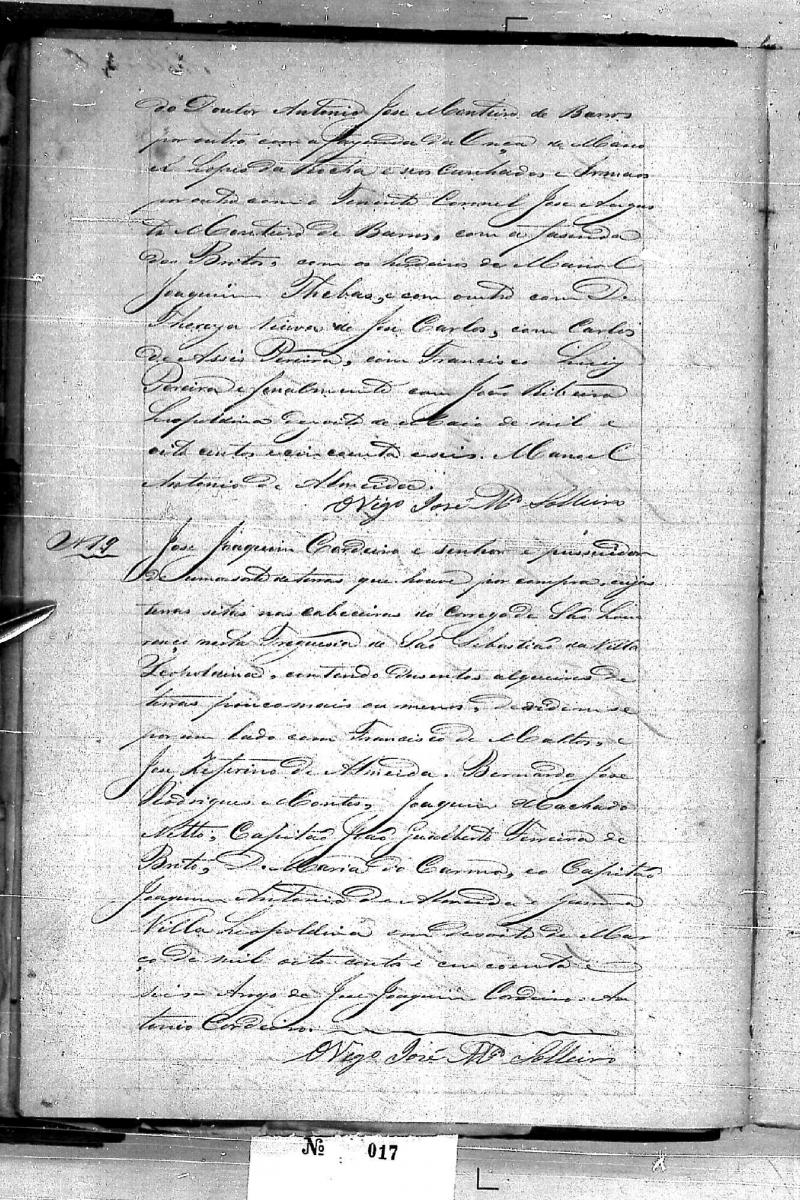 do Doutor Antonio Jose Monteiro de Barros
por outro com a fazenda da Onça de Mano
el Lopes da Rocha e seos Cunhados e Irmaos
por outro com o Tenente Coronel Jose Augus
to Monteiro de Barros, com a fasenda
dos Britos, com os herdeiros de Manoel
Joaquim Thebas, e com outro com D.
Thereza Viuva de Jose Carlos, com Carlos
de Assis Pereira, com Francisco
Pereira e finalmente com João Ribeiro
Leopoldina de Maio de mil e
oito centos e cincoenta e seis. Manoel
Antonio de Almeida.
O Vigo José Ma Solleiro
N 19
Jose Joaquim Cordeiro e senhor e possuidor
de uma sorte de terras que houve por compra, cujas
terras sitas nas cabeceiras do corrego de São Lou
renço nesta Freguesia de São Sebastião da Villa
Leopoldina, contendo dusentos alqueires de
terras pouco mais ou menos, devidem-se
por um lado com Francisco de Mattos, e
Jose Zeferino de Almeida. Bernardo Jose
Rodrigues Montes, Joaquim Machado
Netto, Capitão João Gualberto Ferreira de
Brito, D. Maria do Carmo, e o Capitão
Joaquim Antonio de Almeida e Gama
Villa Leopoldina em desoito de Mar
ço de mil oito centos e cincoenta e
seis Arogo de Jose Joaquim Cordeiro. An
tonio Cordeiro.
O Vigo José Ma Solleiro
No 017